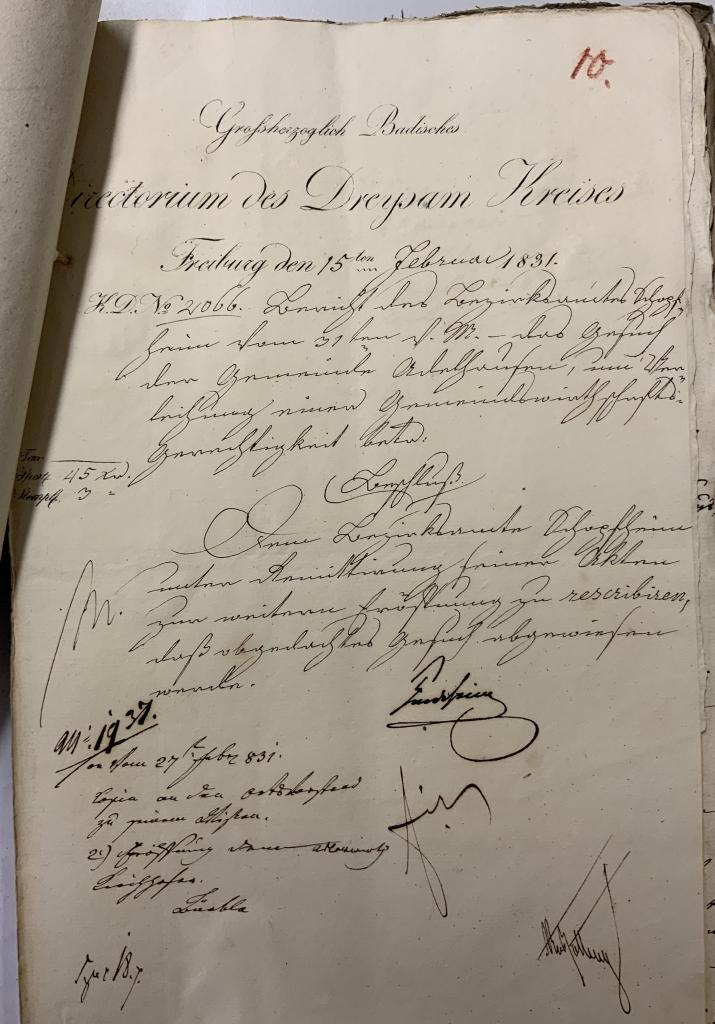 10.
Großherzoglich Badisches
irectorium des Dreysam Kreises
Freiburg den 15ten Februar 1831.
K.D. No 2066. Bericht des Bezirksamtes Schopf-
heim vom 31ten v. M. – das Gesuch
der Gemeinde Adelhausen, um Ver-
leihung einer Gemeindswirthschafts-
Gerechtigkeit betr:
Tax
45 xr.
3 "
Beschluß.
Dem Bezirksamte Schopfheim
unter Remittirung seiner Akten
zur weitern Eröffnung zu rescribiren,
daß obgedachtes Gesuch abgewiesen
werde.
1937.
vom 27t Febr 831.
Copia an den Ortsvorstand
zu
2.) Eröffnung dem